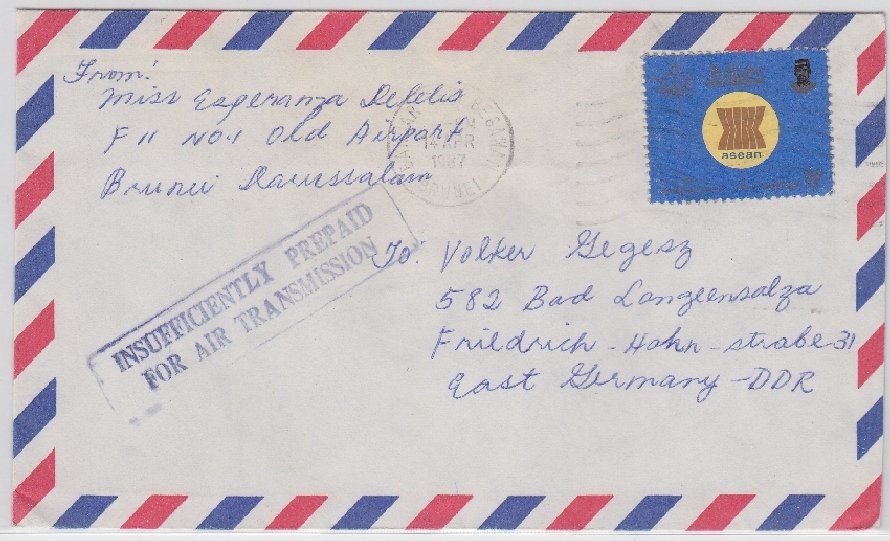 From:
Miss Esperanza Defelis
F 11 No. 1 Old Airport
Brunei Darussalam
BANDAR BEGAWAN
14 APR
1987
BRUNEI
asean
INSUFFICIENTLY PREPAID
FOR AIR TRANSMISSION
To: Volker Gegesz
582 Bad Langeensalza
Friedrich-Hahn-strabe-31
East Germany-DDR